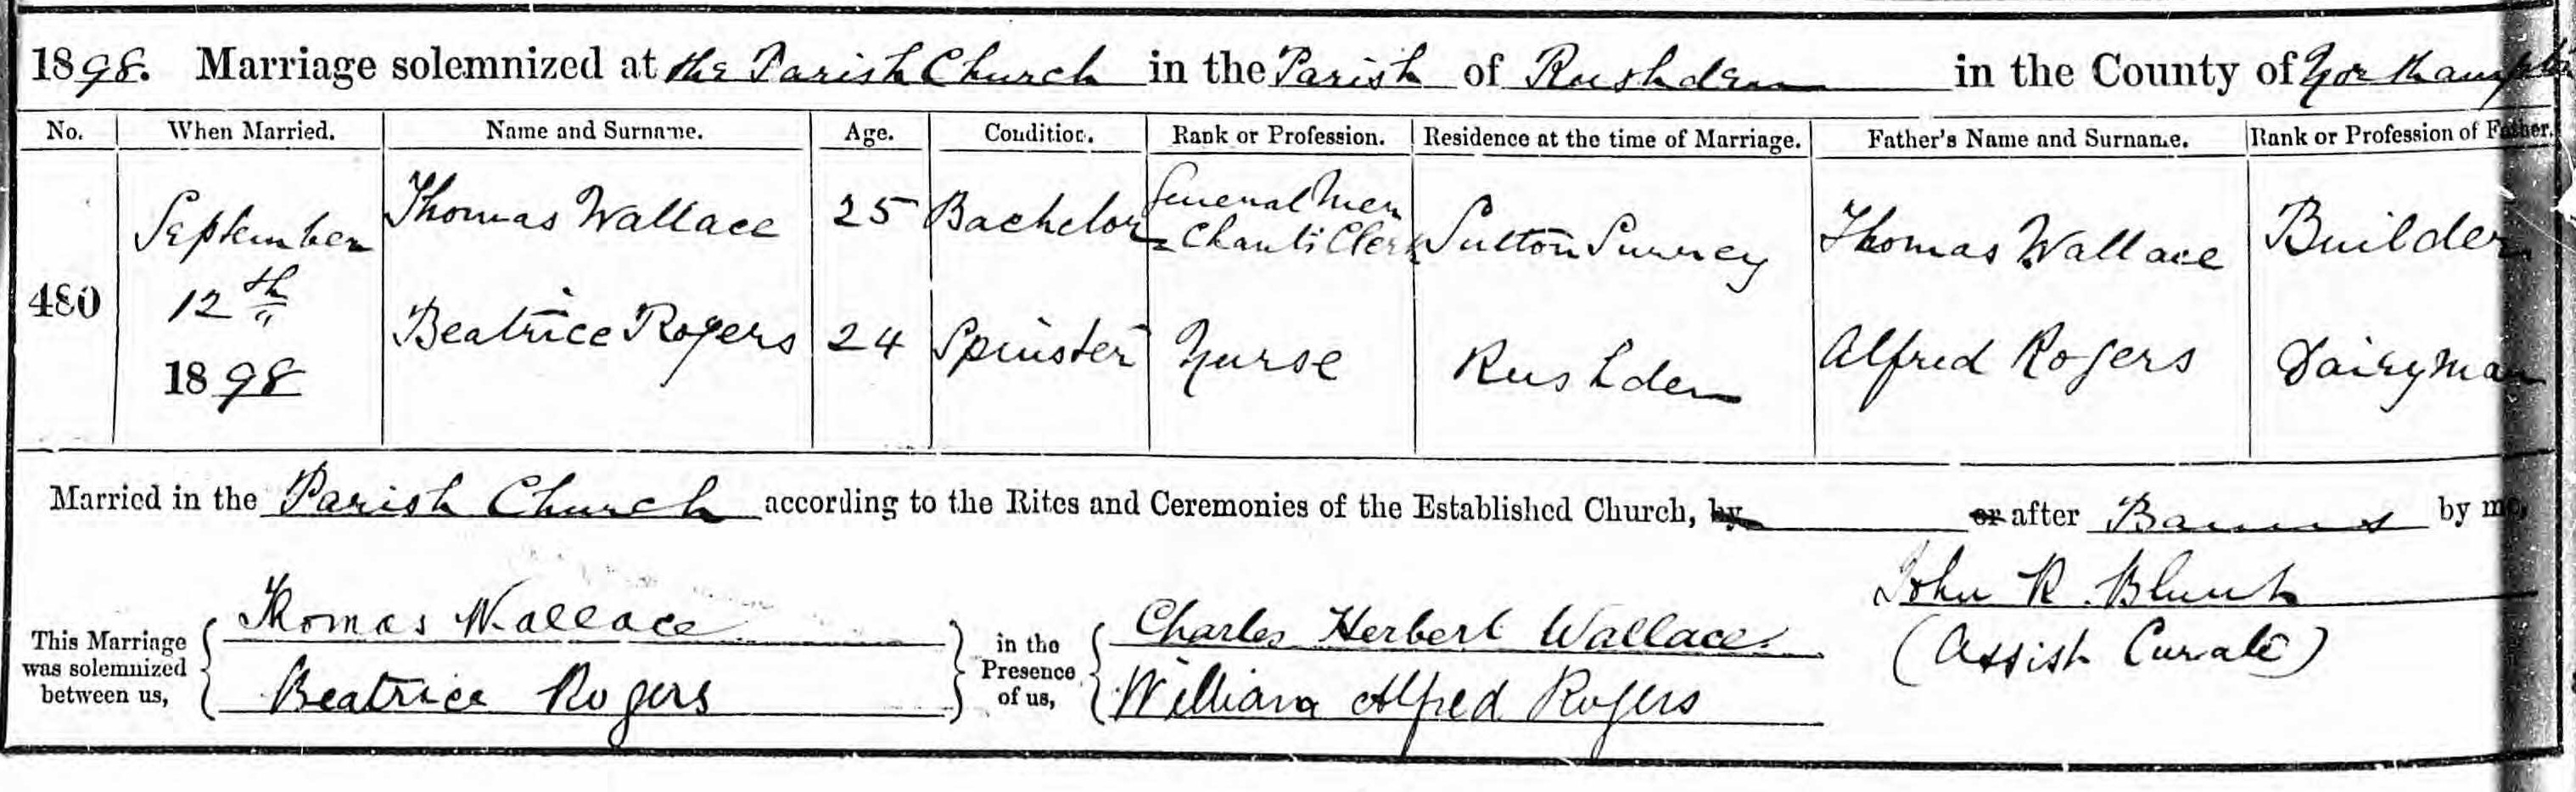 1898. Marriage solemnized at the Parish Church in the Parish of Rushden in the County of Northampton
No. When Married. Name and Surname. Age. Condition. Rank or Profession. Residence at the time of Marriage. Father's Name and Surname. Rank or Profession of Father.
480 September 12th 1898
Thomas Wallace 25 Bachelor General Mer=chants Clerk Sutton Surrey Thomas Wallace Builder
Beatrice Rogers 24 Spinster Nurse Rushden Alfred Rogers Dairyman
Married in the Parish Church according to the Rites and Ceremonies of the Established Church, by or after Banns by me,
John R. Blunt
(Assist Curate)
This Marriage was solemnized between us,
Thomas Wallace
Beatrice Rogers
in the Presence of us,
Charles Herbert Wallace.
William Alfred Rogers